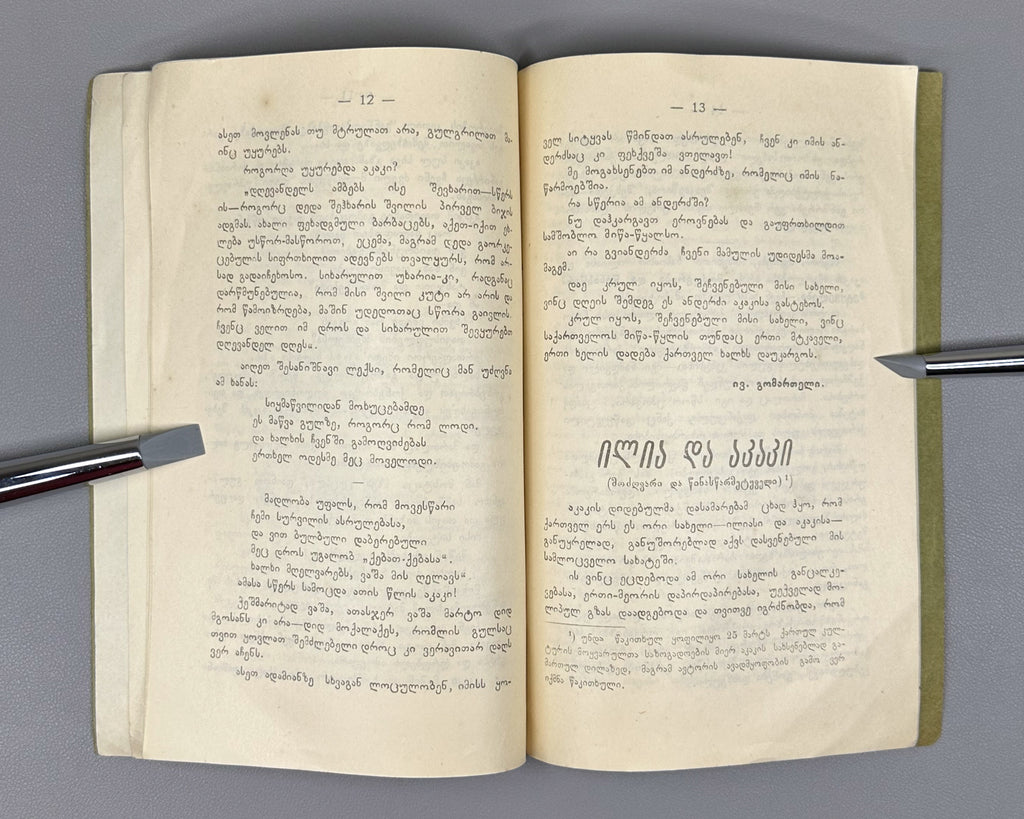 — 12 —
ასეთ მოვლენას თუ მტრულათ არა, გულგრილათ მა-
ინც უყურებს.
როგორღა უყურებდა აკაკი?
„დღევანდელს ამბებს ისე შევხარით—სწერს
ის—როგორც დედა შეჰხარის შვილის პირველ ბიჯის
ადგმას. ახალი ფეხადგმული ბარბაცებს, აქეთ-იქით ეხ-
ლება უსწორ-მასწოროთ, ეცემა, მაგრამ დედა გაორკე-
ცებულის სიფრთხილით ადევნებს თვალყურს, რომ არ-
სად გადაიჩეხოსო. სიხარულით უხარია-კი, რადგანაც
დარწმუნებულია, რომ მისი შვილი კუტი არ არის და
რომ წამოიზრდება, მაშინ უდედოთაც სწორა გაივლის.
ჩვენც ველით იმ დროს და სიხარულით შევყურებთ
დღევანდელ დღეს“.
აიღეთ შესანიშნავი ლექსი, რომელიც მან უძღვნა
ამ ხანას:
სიყმაწვილიდან მოხუცებამდე
ეს მაწვა გულზე, როგორც რომ ლოდი.
და ხალხის ჩვენში გამოღვიძებას
ერთხელ ოდესმე მეც მოველოდი.
—
მადლობა უფალს, რომ მოვესწარი
ჩემი სურვილის ასრულებასა,
და ვით ბულბული დაბერებული
მეც დროს უგალობ „ქებათ-ქებასა“.
ხალხი მღელვარებს, ვაშა მის ღელავს“
ამასა სწერს სამოცდა ათის წლის აკაკი!
ჭეშმარიტად ვაშა, ათასჯერ ვაშა მარტო დიდ
მგოსანს კი არა—დიდ მოქალაქეს, რომლის გულსაც
თვით ყოვლათ შემძლებელი დროც კი ვერავითარ დაღს
ვერ აჩენს.
ასეთ ადამიანზე სხვაგან ლოცულობენ, იმისს ყო-
— 13 —
ველ სიტყვას წმინდათ ასრულებენ, ჩვენ კი იმის ან-
დერძსაც კი ფეხქვეშა ვთელავთ!
მე მოგახსენებთ იმ ანდერძზე, რომელიც იმის ნა-
წარმოებშია.
რა სწერია ამ ანდერძში?
ნუ დაჰკარგავთ ეროვნებას და გაუფრთხილდით
სამშობლო მიწა-წყალსო.
აი რა გვიანდერძა ჩვენი მამულის უდიდესმა მოა-
მაგემ.
დაე კრულ იყოს, შეჩვენებული მისი სახელი,
ვინც დღეის შემდეგ ეს ანდერძი აკაკისა გასტეხოს.
კრულ იყოს, შეჩვენებული მისი სახელი, ვინც
საქართველოს მიწა-წყლის თუნდაც ერთი მტკაველი,
ერთი ხელის დადება ქართველ ხალხს დაუკარგოს.
ივ. გომართელი.
ილია და აკაკი
(მოძღვარი და წინასწარმეტყველი) ¹)
აკაკის დიდებულმა დასამარებამ ცხად ჰყო, რომ
ქართველ ერს ეს ორი სახელი—ილიასი და აკაკისა—
განუყრელად, განუშორებლად აქვს დასვენებული მის
სამლოცველო სახატეში.
ის ვინც ეცდებოდა ამ ორი სახელის განცალკე-
ვებასა, ერთი-მეორის დაპირდაპირებასა, უეჭველად მო-
ლიპულ გზას დაადგებოდა და თვითვე იგრძნობდა, რომ
¹) უნდა წაკითხულ ყოფილიყო 25 მარტს ქართულ კულ-
ტურის მოყვარულთა საზოგადოების მიერ აკაკის სახსენებლად გა-
მართულ დილაზედ, მაგრამ ავტორის ავადმყოფობის გამო ვერ
იქმნა წაკითხული.